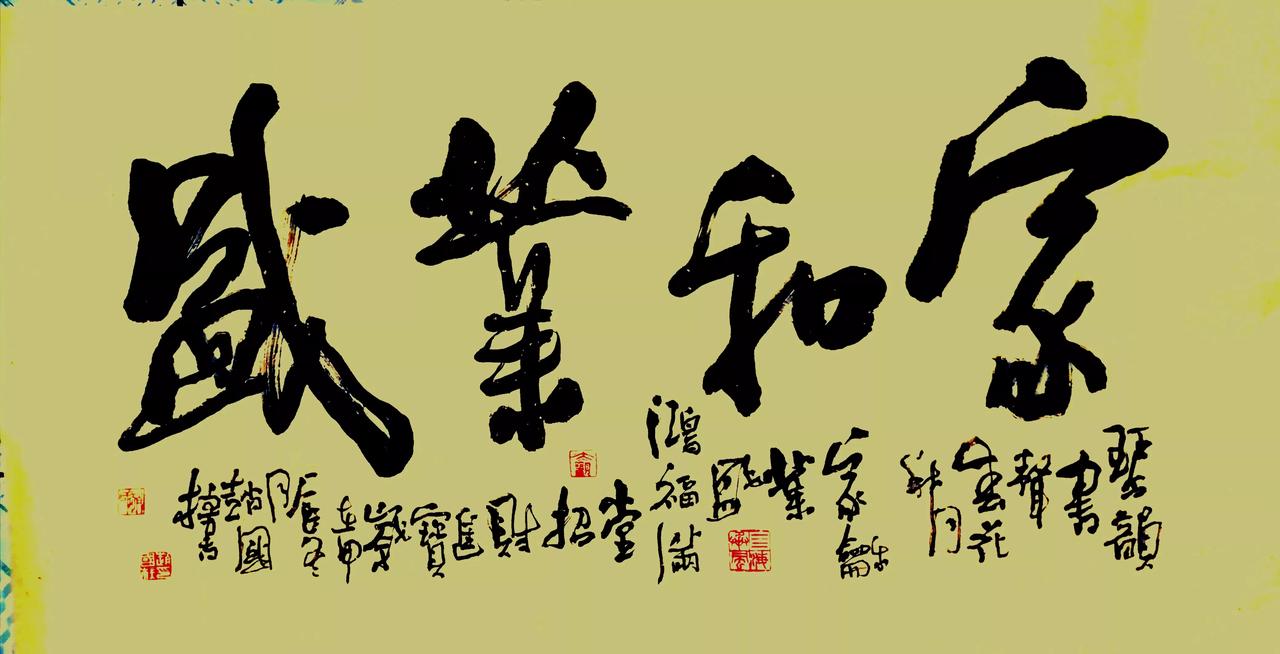 家和業盛
琴韻書聲春花秋月家龢業盛鴻福滿堂招財進寶歲在甲辰冬月趙國書